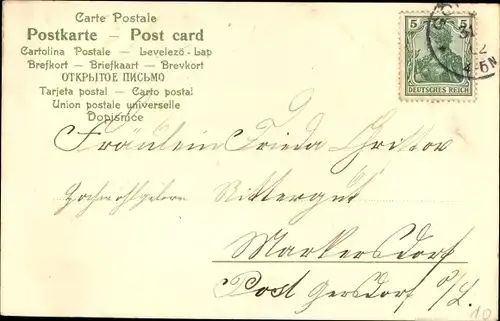 Carte Postale
Postkarte — Post card
Cartolina Postale — Levelező-Lap
Brefkort — Briefkaart — Brevkort
ОТКРЫТОЕ ПИСЬМО
Tarjeta postal — Carto postal
Union postale universelle
Dopisnice
5 5
DEUTSCHES REICH
Fräulein Frieda
Hochwohlgeboren Rittergut
Markersdorf
Post Gersdorf O/L.
10